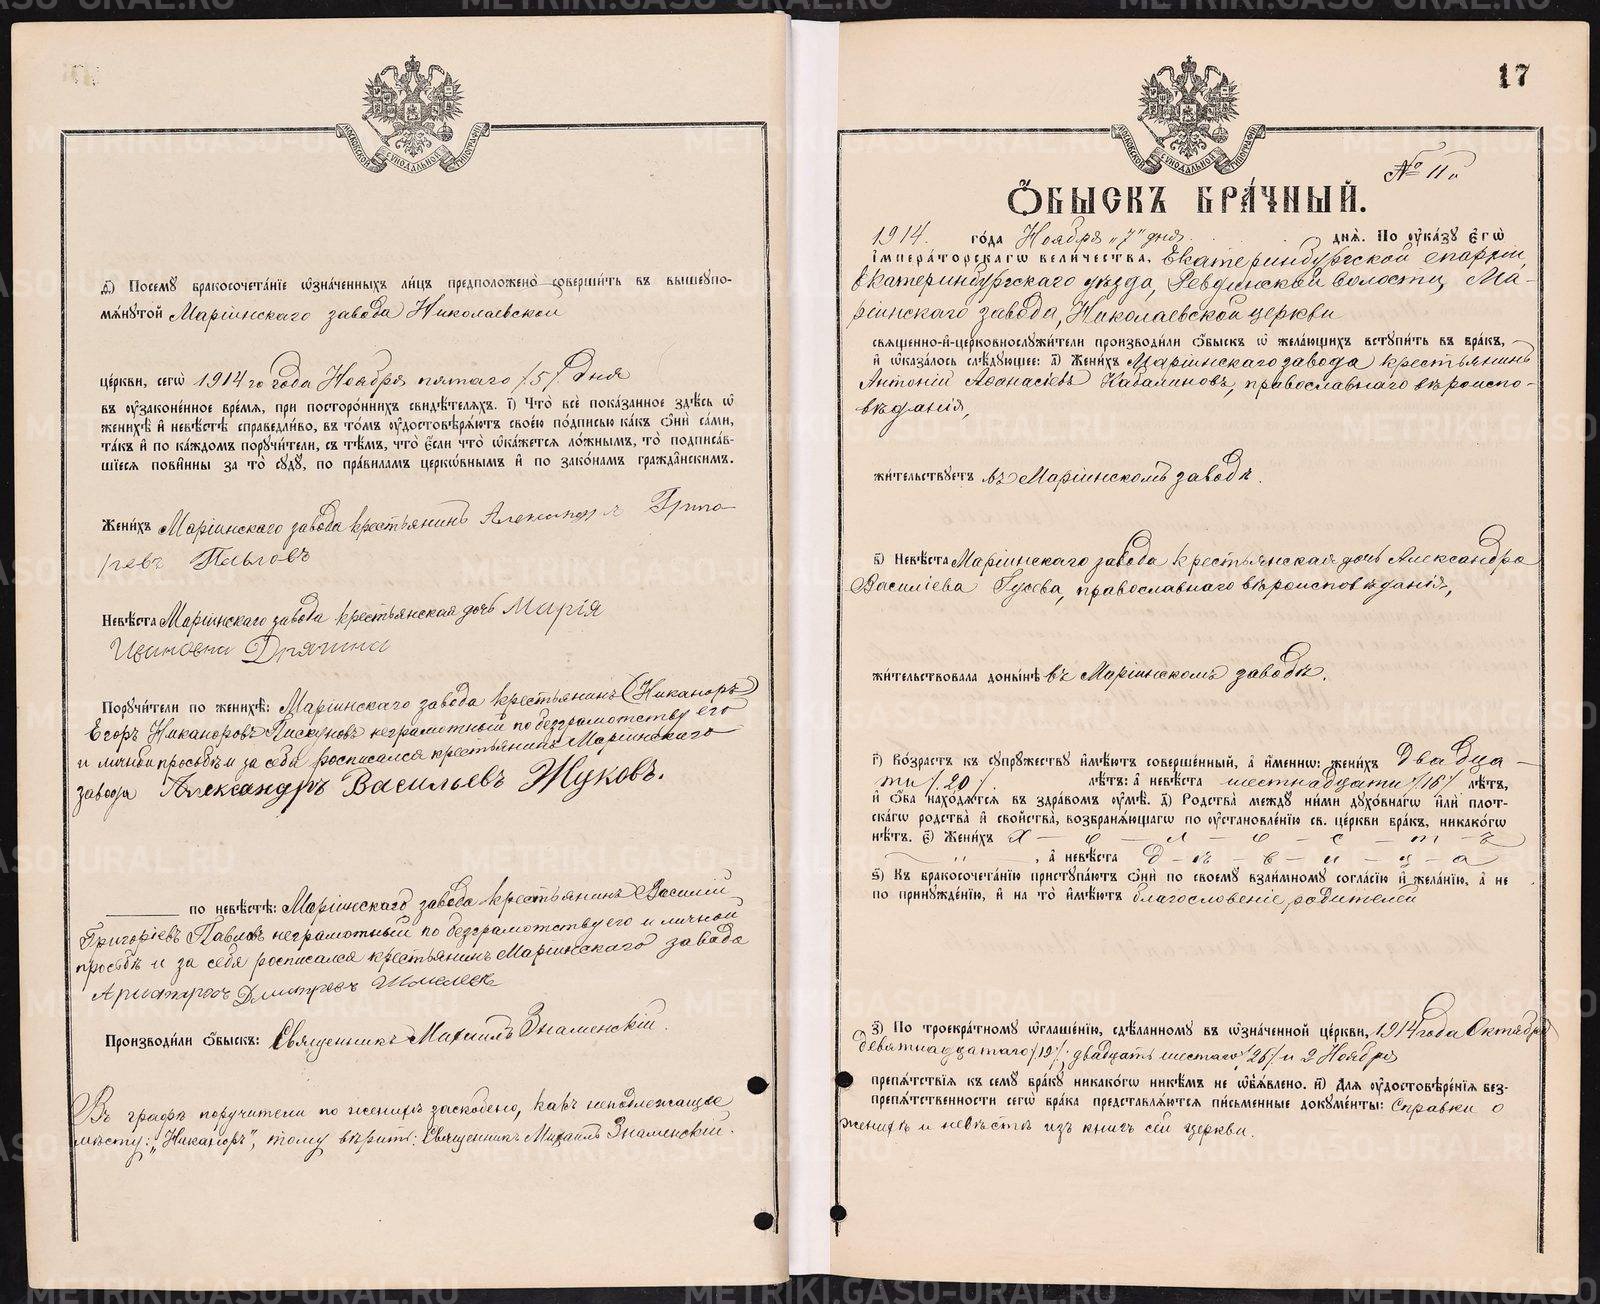 МОСКОВСКОЙ СѴНОДАЛЬНОЙ ТИПОГРАФІИ
д҃) Посемꙋ бракосочета́нїе ѡ҆зна́ченныхъ ли́цъ предположено̀ соверши́ть въ вышеꙋпо-
мѧ́нꙋтой Маріинскаго завода Николаевской
це́ркви, сегѡ̀ 1914 го года Ноября пятаго /5/ дня
въ ᲂу҆зако́не́нное вре́мѧ, при посторо́ннихъ свидѣ́телѧхъ. і҃) Что̀ всѐ пока́занное здѣ́сь ѡ҆
женихѣ̀ и҆ невѣ́стѣ справедли́во, въ то́мъ ᲂу҆достовѣрѧ́ютъ свое́ю по́дписью ка́къ ѻ҆нѝ са́ми,
та́къ и҆ по ка́ждомъ порꙋчи́тели, съ тѣ́мъ, что̀ є҆́сли что̀ ѡ҆ка́жетсѧ ло́жнымъ, то̀ подписа́в-
шїесѧ пови́нны за то̀ сꙋдꙋ̀, по пра́виламъ церкѡ́внымъ и҆ по зако́намъ гражда́нскимъ.
Жени́хъ Маріинскаго завода крестьянинъ Александръ Григо-
рьевъ Павловъ
Невѣ́ста Маріинскаго завода крестьянская дочь Марія
Ивановна Дрягина
Порꙋчи́тели по женихѣ̀: Маріинскаго завода крестьянинъ (Никаноръ)
Егоръ Никаноровъ Пискуновъ неграмотный по безграмотству его
и личной просьбѣ и за себя росписался крестьянинъ Маріинскаго
завода Александръ Васильевъ Жуковъ.
по невѣ́стѣ: Маріинскаго завода крестьянинъ Василій
Григоріевъ Павловъ неграмотный по безграмотству его и личной
просьбѣ и за себя росписался крестьянинъ Маріинскаго завода
Дмитріевъ
Производи́ли ѻ҆́быскъ: Священникъ Михаилъ Знаменскій.
Въ графѣ поручители по женихѣ заскоблено, какъ неподлежащее
мѣсту: „Никаноръ“, тому вѣрить: Священникъ Михаилъ Знаменскій.
17
МОСКОВСКОЙ СѴНОДАЛЬНОЙ ТИПОГРАФІИ
№ 11й
Ѻ҆́БЫСКЪ БРА́ЧНЫЙ.
1914. го́да Ноября „7“ дня днѧ̀. По ᲂу҆ка́зꙋ є҆гѡ̀
и҆мпера́торскагѡ вели́чества, Екатеринбургской епархіи,
Екатеринбургскаго уѣзда, Ревдинской волости, Ма-
ріинскаго завода, Николаевской церкви
свѧще́нно-и҆-церковнослꙋжи́тели производи́ли ѻ҆́быскъ ѡ҆ жела́ющихъ встꙋпи́ть въ бра́къ,
и҆ ѡ҆каза́лось слѣ́дꙋющее: а҃) Жени́хъ Маріинскаго завода крестьянинъ
Антоній Аѳонасіевъ Кабалиновъ, православнаго вѣроиспо-
вѣданія,
жи́тельствꙋетъ въ Маріинскомъ заводѣ.
в҃) Невѣ́ста Маріинскаго завода крестьянская дочь Александра
Василіева Гусева, православнаго вѣроисповѣданія,
жи́тельствовала доны́нѣ въ Маріинскомъ заводѣ.
г҃) Во́зрастъ къ сꙋпрꙋ́жествꙋ и҆мѣ́ютъ соверше́нный, а҆ и҆́меннѡ: жени́хъ двадца-
ти /20/ лѣ́тъ: а҆ невѣ́ста шестнадцати /16/ лѣ́тъ,
и҆ ѻ҆́ба нахо́дѧтсѧ въ здра́вомъ ᲂу҆мѣ̀. д҃) Родства̀ междꙋ̀ ни́ми дꙋхо́внагѡ и҆лѝ пло́т-
скагѡ родства̀ и҆ сво́йства, возбранѧ́ющагѡ по ᲂу҆становле́нїю св. це́ркви бра́къ, никако́гѡ
нѣ́тъ. є҃) Жени́хъ х – о – л – о – с – т – ъ
„ , а҆ невѣ́ста д – ѣ – в – и – ц – а
ѕ҃) Къ бракосочета́нїю пристꙋпа́ютъ ѻ҆нѝ по своемꙋ̀ взаи́мномꙋ согла́сїю и҆ жела́нїю, а҆ не
по принꙋжде́нїю, и҆ на то̀ и҆мѣ́ютъ благословеніе родителей
з҃) По троекра́тномꙋ ѡ҆глаше́нїю, сдѣ́ланномꙋ въ ѡ҆зна́ченной це́ркви, 1914 года Октября
девятнадцатаго /19/, двадцать шестаго /26/ и 2 Ноября
препѧ́тствїѧ къ семꙋ̀ бра́кꙋ никако́гѡ никѣ́мъ не ѡ҆б̾ѧ́влено. и҃) Длѧ̀ ᲂу҆достовѣре́нїѧ без-
препѧ́тственности сегѡ̀ бра́ка представлѧ́ютсѧ пи́сьменные докꙋме́нты: Справки о
женихѣ и невѣстѣ изъ книгъ сей церкви.
METRIKI.GASO-URAL.RU